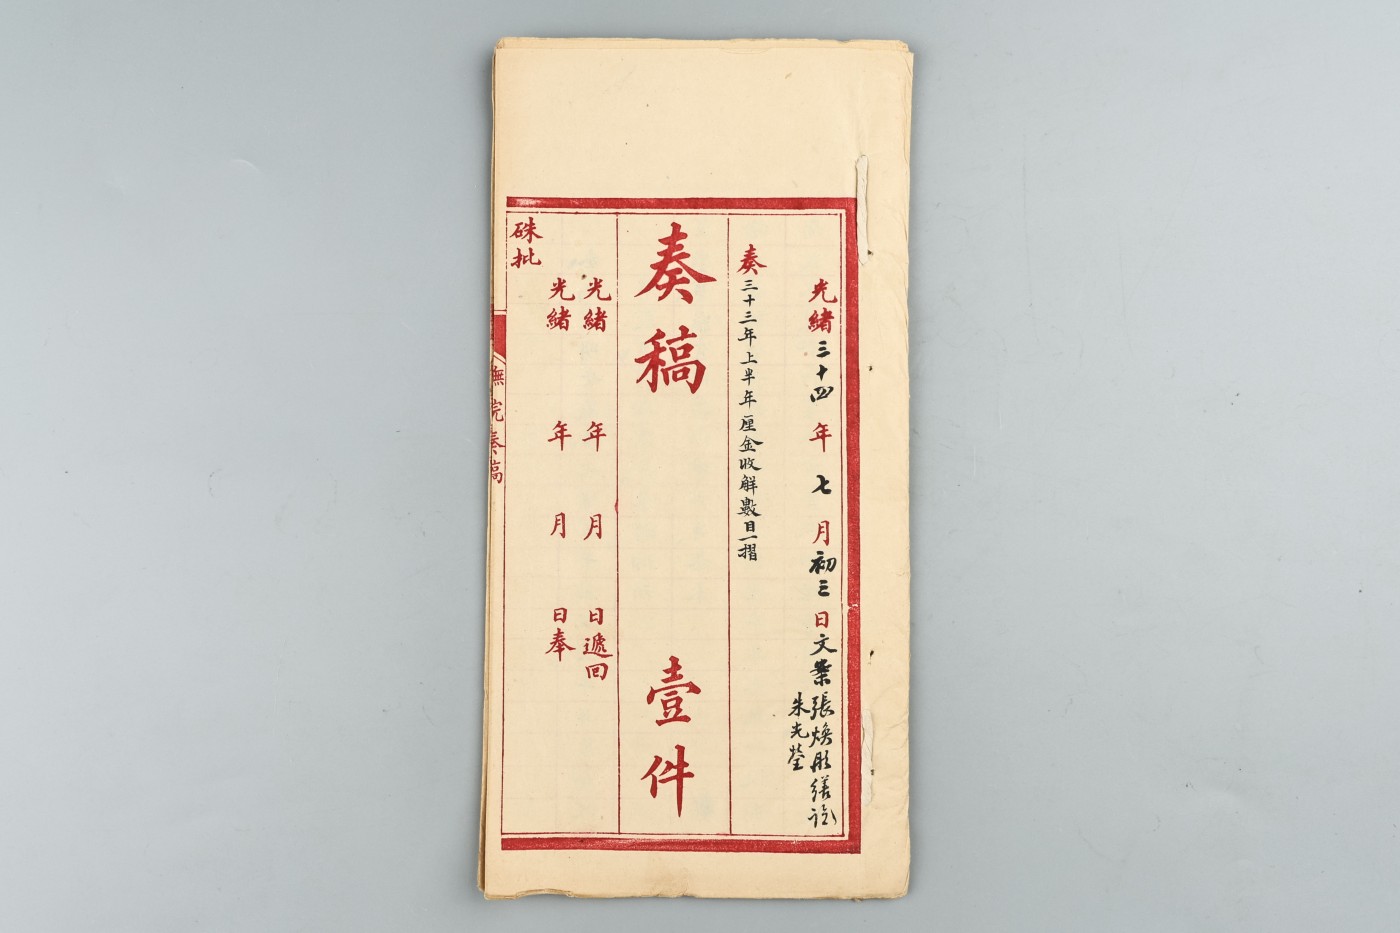 光緒三十四年七月初三日文案張煥彤繕訖
朱光瑩
奏三十三年上半年厘金收解數目一摺
奏稿壹件
光緒年月日遞回
光緒年月日奉
硃批
撫院奏稿